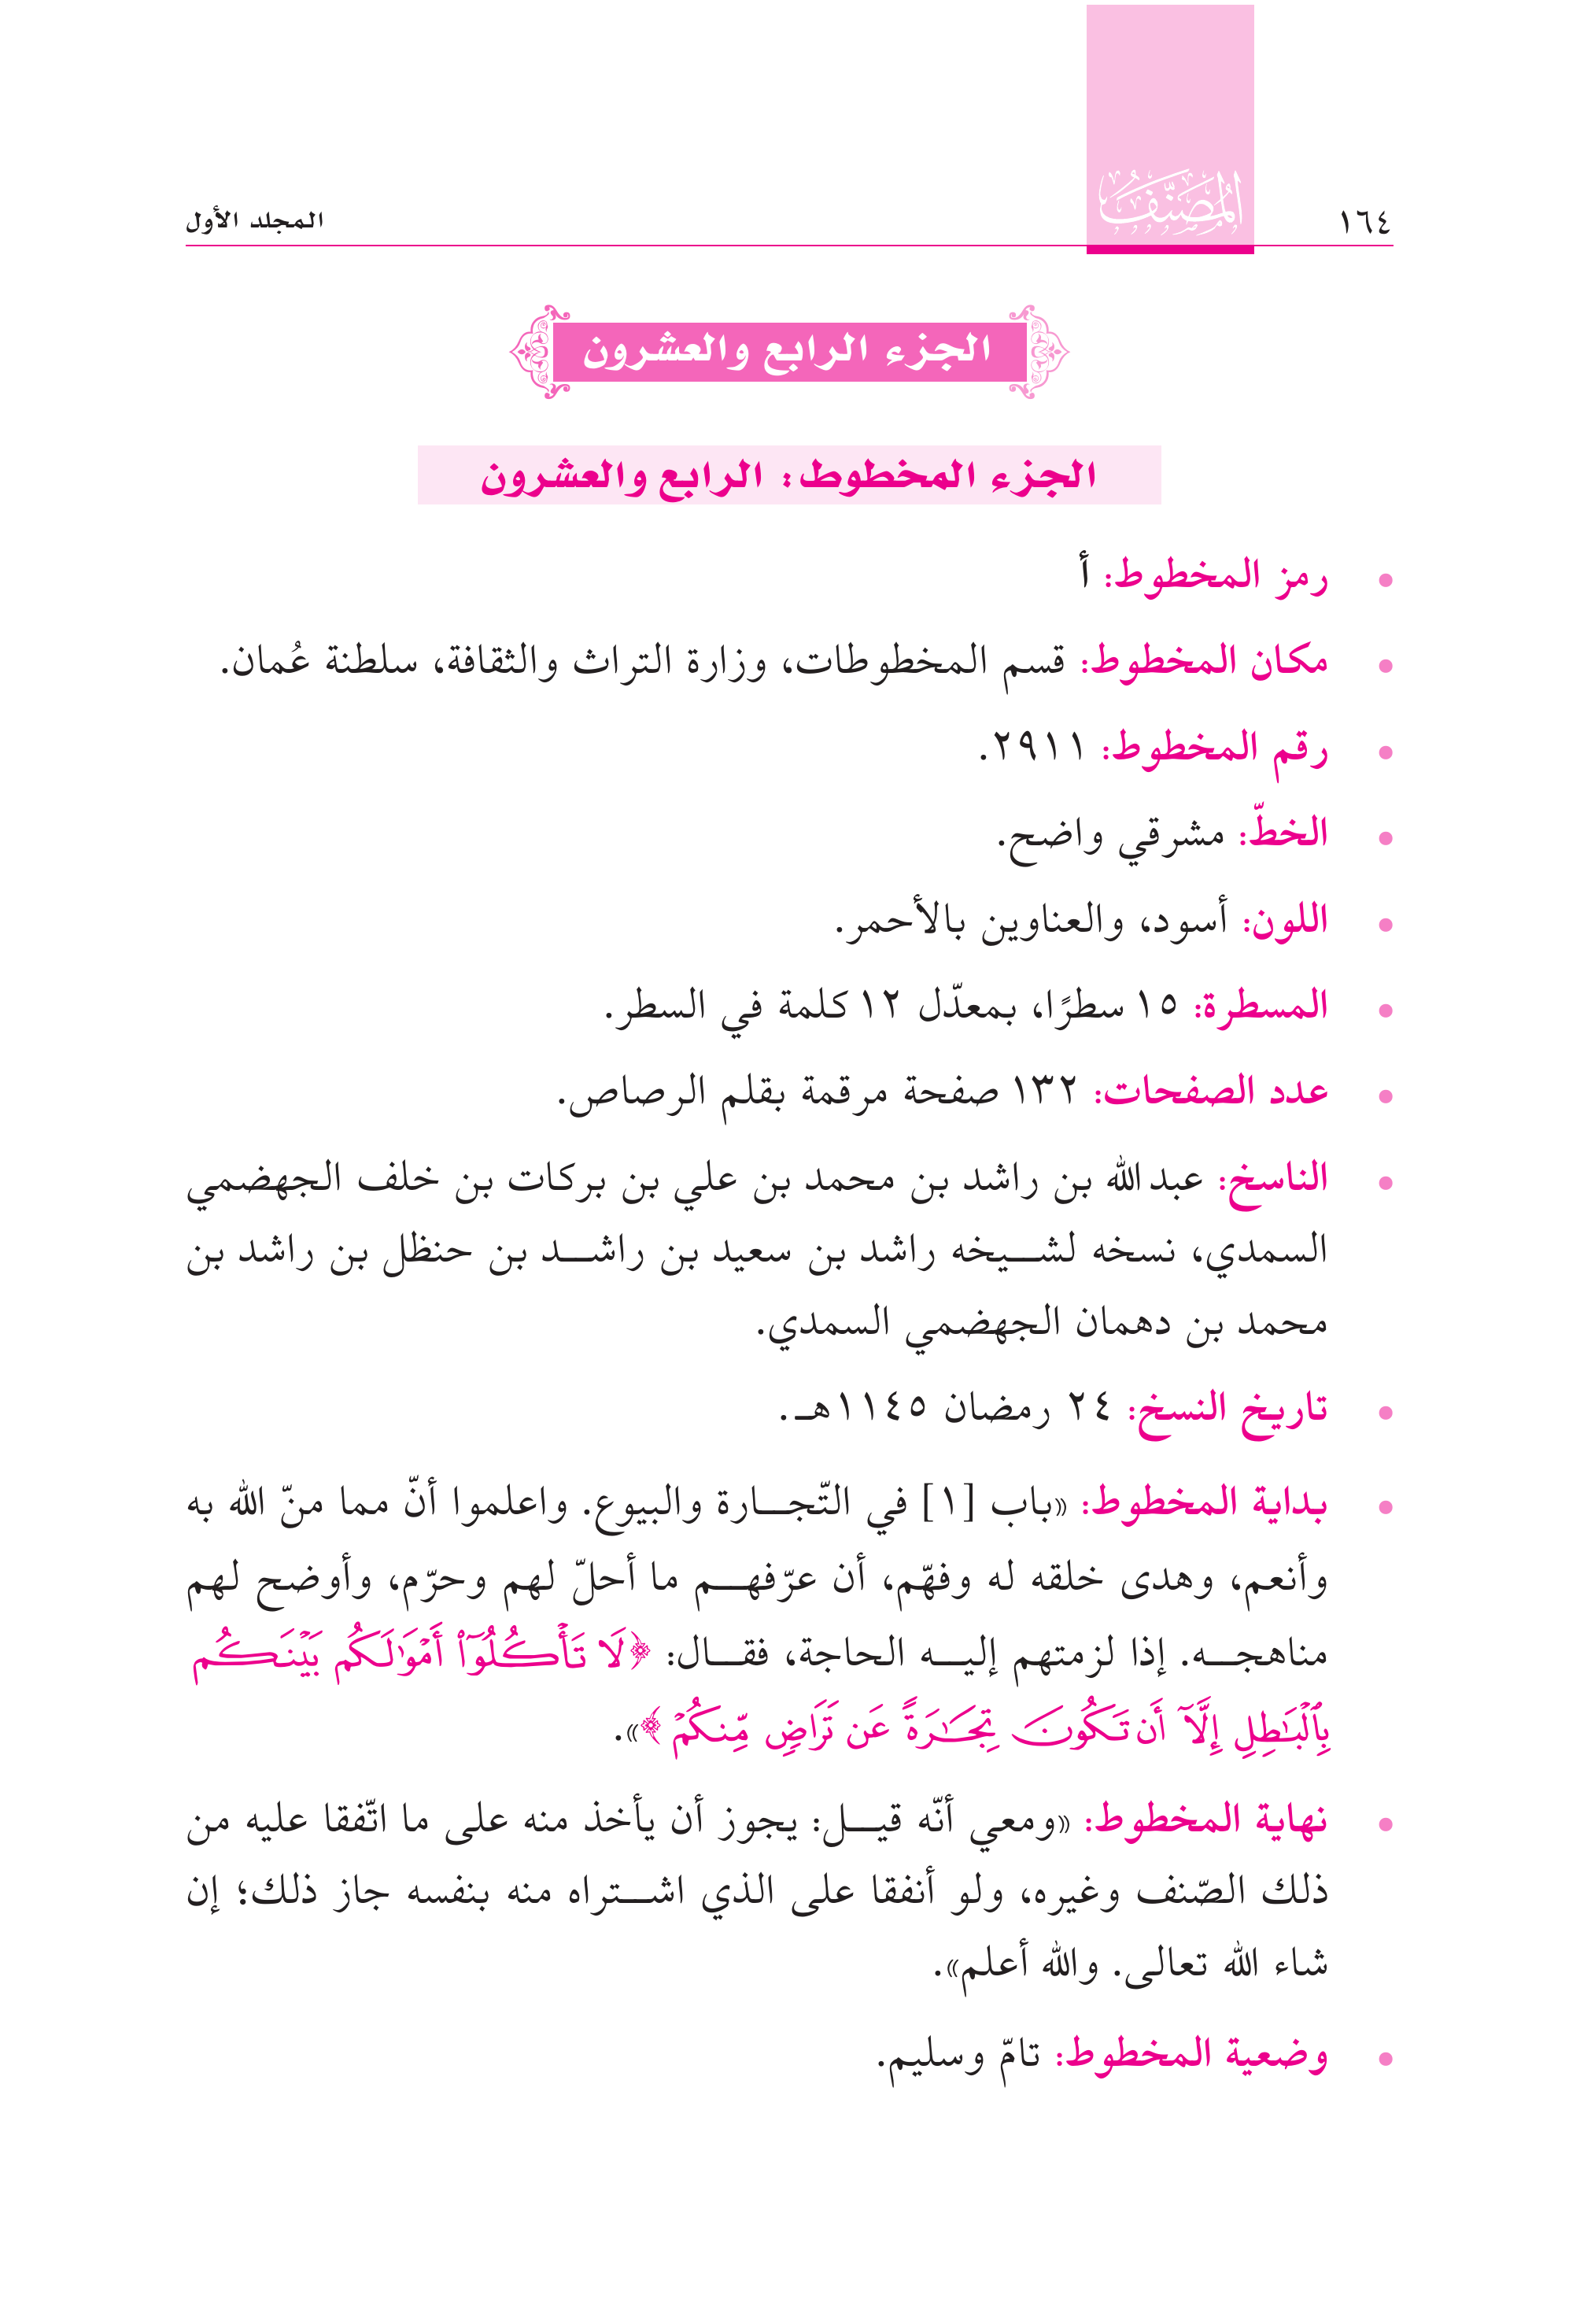 ١٦٤
المصنف
المجلد الأول
الجزء الرابع والعشرون
الجزء المخطوط: الرابع والعشرون
• رمز المخطوط: أ
• مكان المخطوط: قسم المخطوطات، وزارة التراث والثقافة، سلطنة عُمان.
• رقم المخطوط: ٢٩١١.
• الخطّ: مشرقي واضح.
• اللون: أسود، والعناوين بالأحمر.
• المسطرة: ١٥ سطرًا، بمعدّل ١٢ كلمة في السطر.
• عدد الصفحات: ١٣٢ صفحة مرقمة بقلم الرصاص.
• الناسخ: عبدالله بن راشد بن محمد بن علي بن بركات بن خلف الجهضمي
السمدي، نسخه لشيخه راشد بن سعيد بن راشد بن حنظل بن راشد بن
محمد بن دهمان الجهضمي السمدي.
• تاريخ النسخ: ٢٤ رمضان ١١٤٥هـ.
• بداية المخطوط: «باب [١] في التّجارة والبيوع. واعلموا أنّ مما منّ الله به
وأنعم، وهدى خلقه له وفهّم، أن عرّفهم ما أحلّ لهم وحرّم، وأوضح لهم
مناهجه. إذا لزمتهم إليه الحاجة، فقال: ﴿لَا تَأْكُلُوٓا۟ أَمْوَٰلَكُم بَيْنَكُم
بِٱلْبَٰطِلِ إِلَّآ أَن تَكُونَ تِجَٰرَةً عَن تَرَاضٍ مِّنكُمْ﴾».
• نهاية المخطوط: «ومعي أنّه قيل: يجوز أن يأخذ منه على ما اتّفقا عليه من
ذلك الصّنف وغيره، ولو أنفقا على الذي اشتراه منه بنفسه جاز ذلك؛ إن
شاء الله تعالى. والله أعلم».
• وضعية المخطوط: تامّ وسليم.